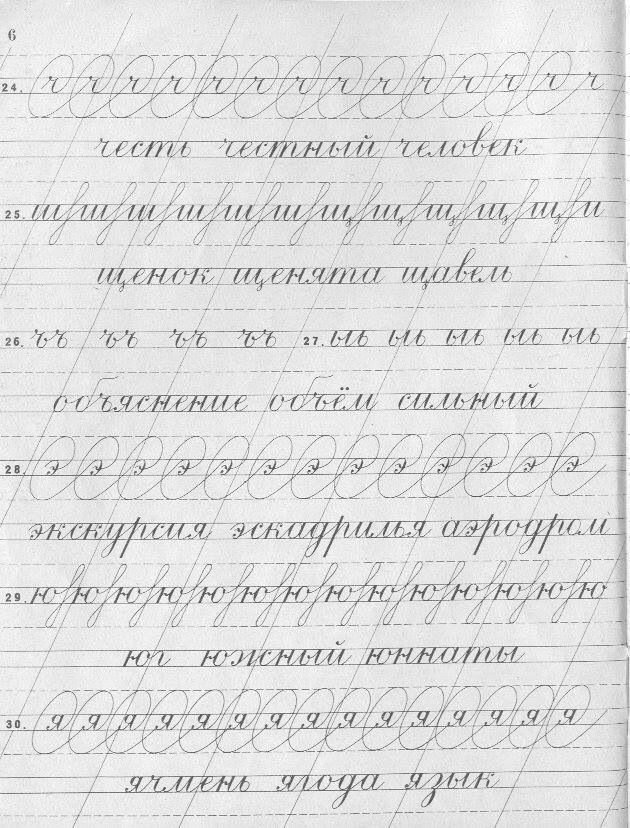 6
24. ч ч ч ч ч ч ч ч ч ч ч ч ч ч
честь честный человек
25. ш ш ш ш ш ш щ щ щ щ щ и
щенок щенята щавель
26. ъъ ъъ ъъ ъъ 27. ыь ыь ыь ыь ыь
объяснение объём сильный
28. э э э э э э э э э э э э э
экскурсия эскадрилья аэродром
29. ю ю ю ю ю ю ю ю ю ю ю ю ю ю
юг южный юннаты
30. я я я я я я я я я я я я я я
ячмень ягода язык